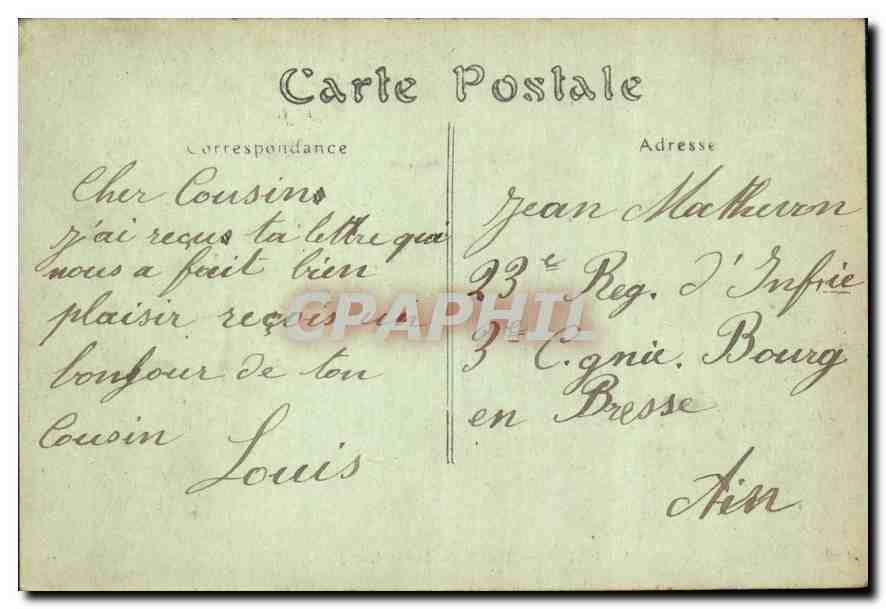 Carte Postale
Correspondance
Adresse
Cher Cousin
j'ai reçus ta lettre qui
nous a fait bien
plaisir reçois un
bonjour de ton
Cousin
Louis
Jean Matheron
23e Reg. d'Infrie
3e C.gnie. Bourg
en Bresse
Ain
CPAPHIL